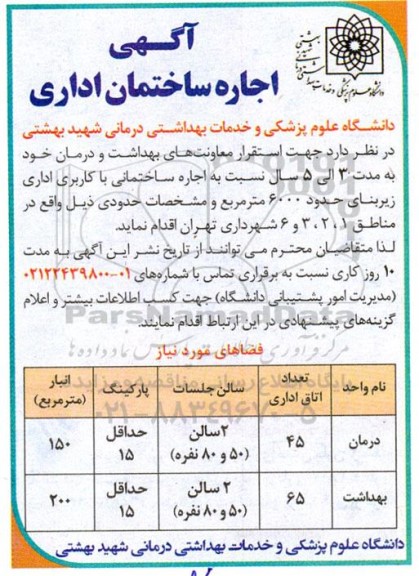 آگهی
اجاره ساختمان اداری
دانشگاه علوم پزشکی و خدمات بهداشتی درمانی شهید بهشتی
در نظر دارد جهت استقرار معاونت‌های بهداشت و درمان خود
به مدت ۳ الی ۵ سال نسبت به اجاره ساختمانی با کاربری اداری
زیربنای حدود ۶۰۰۰ مترمربع و مشخصات حدودی ذیل واقع در
مناطق ۱، ۲، ۳ و ۶ شهرداری تهران اقدام نماید.
لذا متقاضیان محترم می توانند از تاریخ نشر این آگهی به مدت
۱۰ روز کاری نسبت به برقراری تماس با شماره‌های ۰۱-۰۲۱۲۲۴۳۹۸۰۰
(مدیریت امور پشتیبانی دانشگاه) جهت کسب اطلاعات بیشتر و اعلام
گزینه‌های پیشنهادی در این ارتباط اقدام نمایند.
ParsNamadData
فضاهای مورد نیاز
نام واحد تعداد اتاق اداری سالن جلسات پارکینگ انبار (مترمربع)
درمان ۴۵ ۲سالن (۵۰ و ۸۰ نفره) حداقل ۱۵ ۱۵۰
بهداشت ۶۵ ۲ سالن (۵۰ و ۸۰ نفره) حداقل ۱۵ ۲۰۰
۰۲۱-۸۸۳۴۹۶۷۰-۵
دانشگاه علوم پزشکی و خدمات بهداشتی درمانی شهید بهشتی